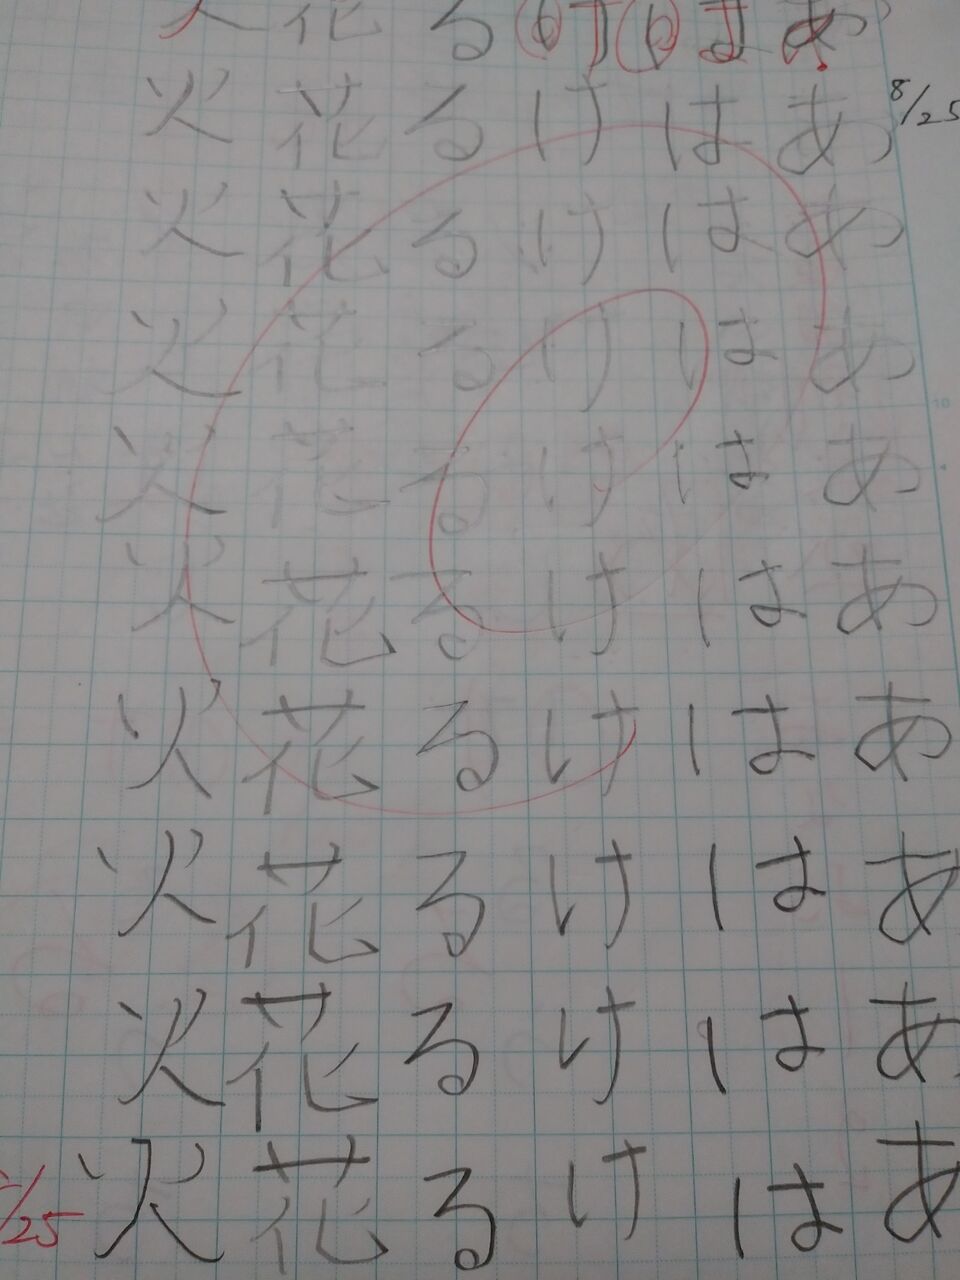 火 花 る け は あ
火 花 る け は あ 8/25
火 花 る け は あ
火 花 る け は あ
火 花 る け は あ
火 花 る け は あ
火 花 る け は あ
火 花 る け は あ
火 花 る け は あ
/25 火 花 る け は あ